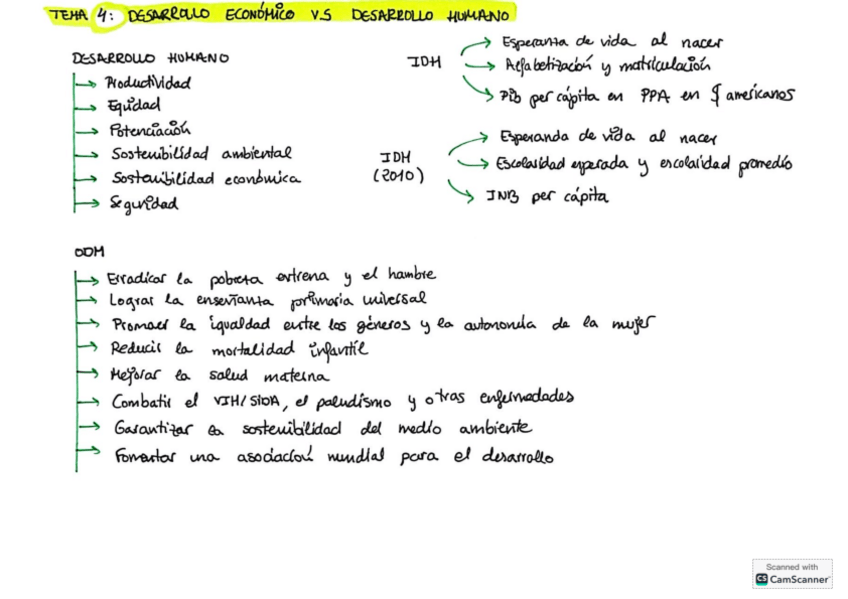 TEMA 4: DESARROLLO ECONÓMICO V.S DESARROLLO HUMANO
DESARROLLO HUMANO
Productividad
Equidad
Potenciación
Sostenibilidad ambiental
Sostenibilidad económica
Seguridad
IDH
Esperanza de vida al nacer
Alfabetización y matriculación
Pib per cápita en PPA en $ americanos
IDH
(2010)
Esperanda de vida al nacer
Escolaridad esperada y escolaridad promedio
INB per cápita
ODM
Erradicar la pobreza extrema y el hambre
Lograr la enseñanza primaria universal
Promover la igualdad entre los géneros y la autonomía de la mujer
Reducir la mortalidad infantil
Mejorar la salud materna
Combatir el VIH/SIDA, el paludismo y otras enfermedades
Garantizar la sostenibilidad del medio ambiente
Fomentar una asociación mundial para el desarrollo
Scanned with
CS CamScanner